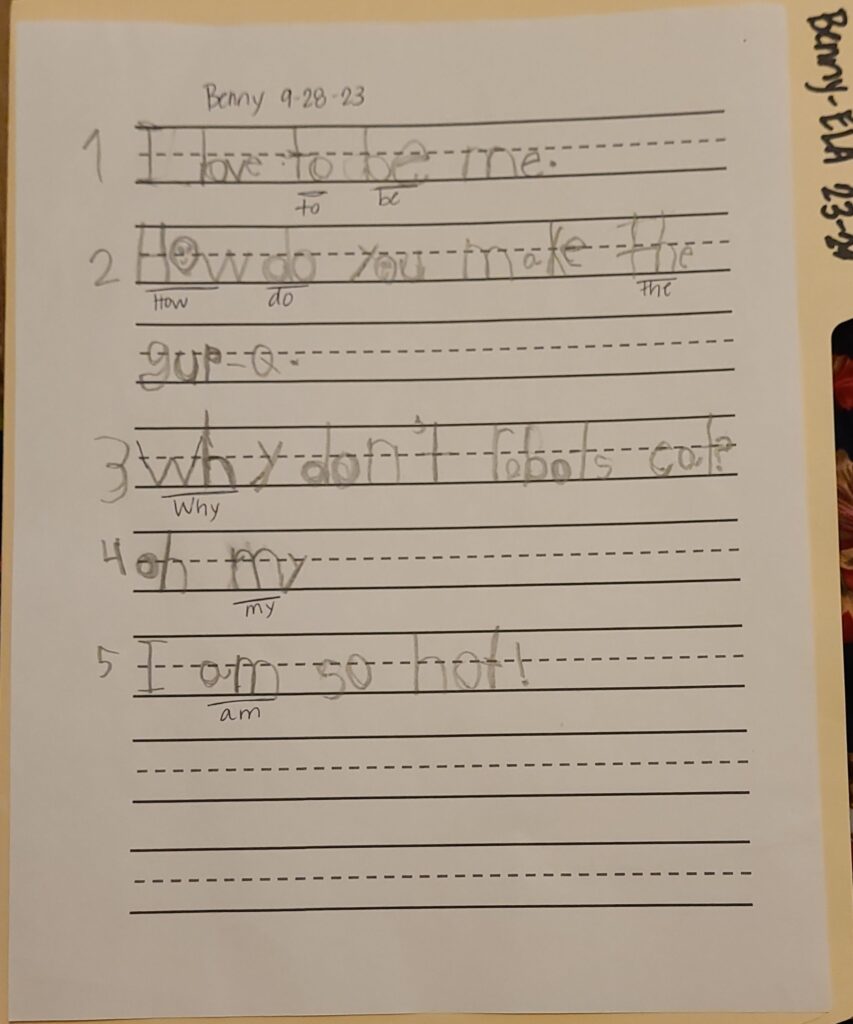 Benny 9-28-23
1 I love to be me.
to be
2 How do you make the
How do The
gup-Q.
3 Why don't robots eat?
Why
4 oh my
my
5 I am so hot!
am
Benny-ELA 23-24